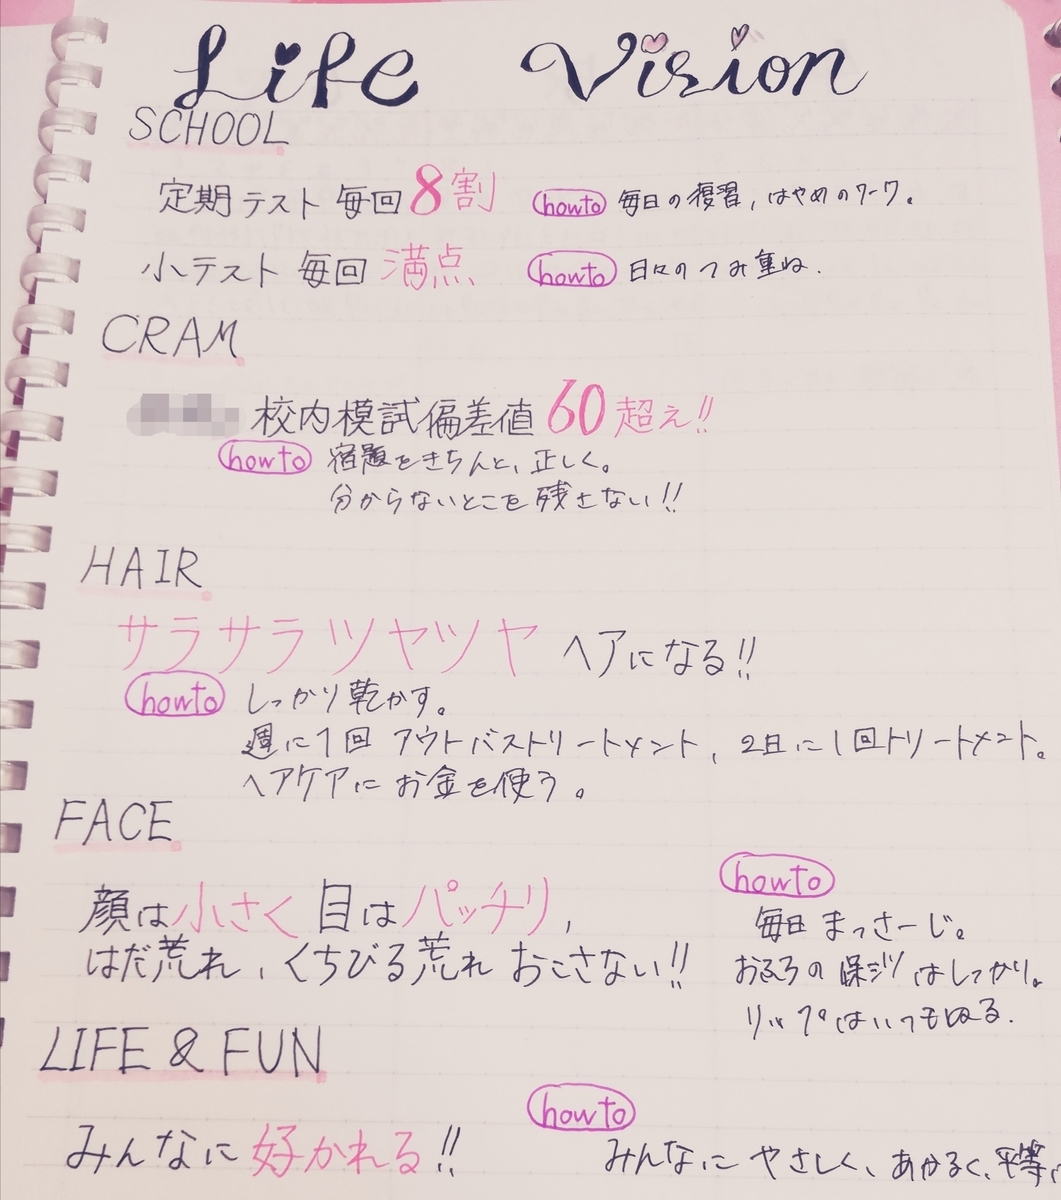 Life Vision
SCHOOL
定期テスト 毎回 8割 howto 毎日の復習, はやめのワーク。
小テスト 毎回 満点 howto 日々のつみ重ね.
CRAM
校内模試偏差値 60 超え!!
howto 宿題をきちんと、正しく。
分からないとこを残さない!!
HAIR
サラサラツヤツヤ ヘアになる!!
howto しっかり乾かす。
週に1回 アウトバストリートメント, 2日に1回トリートメント。
ヘアケアにお金を使う。
FACE
howto
顔は小さく 目はパッチリ, 毎日 まっさーじ。
はだ荒れ、くちびる荒れ おこさない!! おふろの保シツはしっかり。
リップはいつもぬる.
LIFE & FUN
howto
みんなに 好かれる!! みんなに やさしく、あかるく、平等に